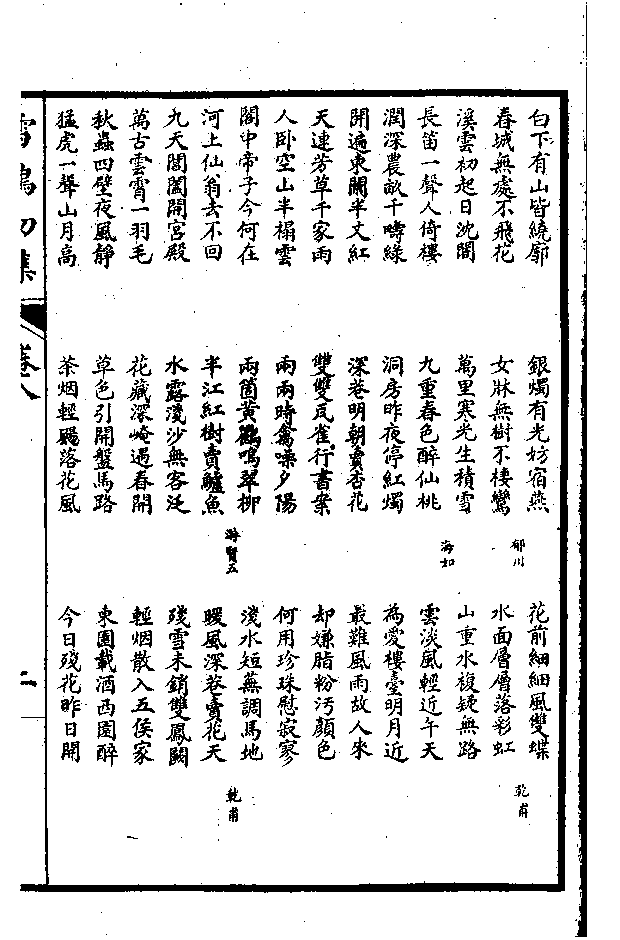 白下有山皆繞郭　銀燭有光妨宿燕　花前細細風雙蝶
春城無處不飛花　女牀無樹不棲鸞　郁川　水面層層落彩虹　乾甫
溪雲初起日沈閣　萬里寒光生積雪　山重水複疑無路
長笛一聲人倚樓　九重春色醉仙桃　海如　雲淡風輕近午天
澗深農畝千疇綠　洞房昨夜停紅燭　為愛樓臺明月近
開遍東闌半丈紅　深巷明朝賣杏花　最難風雨故人來
天連芳草千家雨　雙雙瓦雀行書案　却嫌脂粉汚顏色
人臥空山半榻雲　兩兩時禽噪夕陽　何用珍珠慰寂寥
閣中帝子今何在　兩箇黃鸝鳴翠柳　淺水短蕪調馬地
河上仙翁去不回　半江紅樹賣鱸魚　游賢五　暖風深巷賣花天　乾甫
九天閶闔開宮殿　水露淺沙無客泛　殘雪未銷雙鳳闕
萬古雲霄一羽毛　花藏深崦遇春開　輕烟散入五侯家
秋蟲四壁夜風靜　草色引開盤馬路　東園載酒西園醉
猛虎一聲山月高　茶烟輕颺落花風　今日殘花昨日開
雪鴻初集　卷八　二